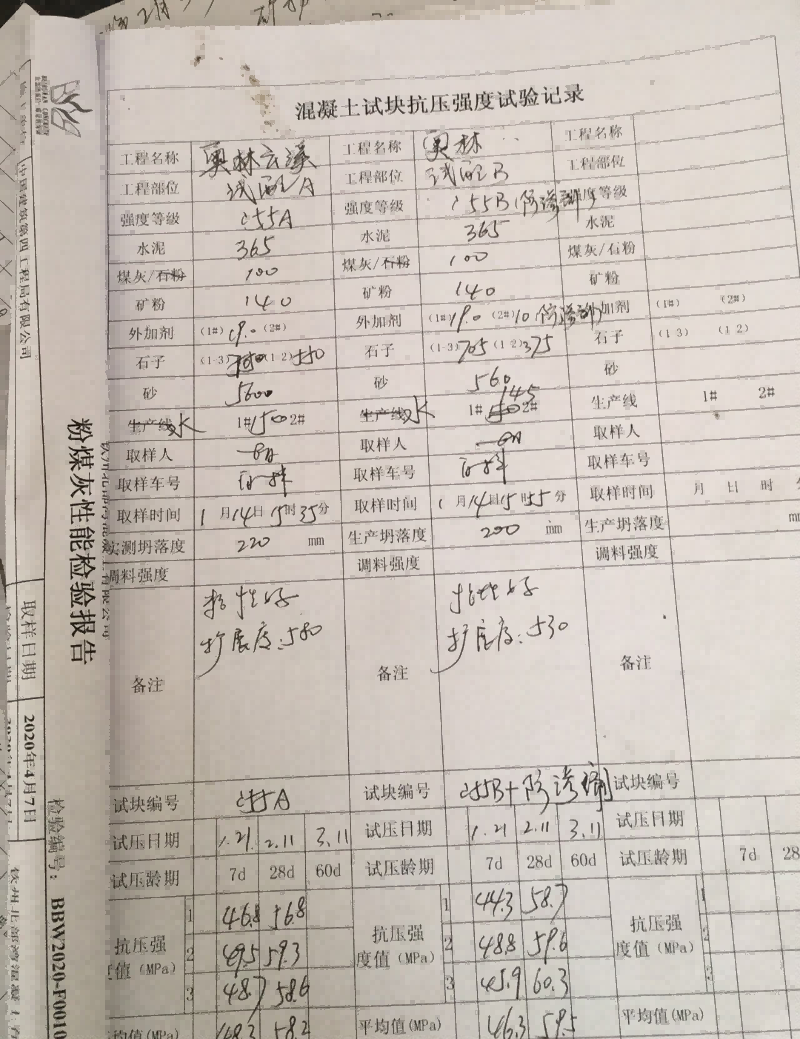 混凝土试块抗压强度试验记录
工程名称 奥林云溪 工程名称 奥林 工程名称
工程部位 试配A 工程部位 试配B 工程部位
强度等级 C55A 强度等级 C55B(防渗 度等级
水泥 365 水泥 365 水泥
煤灰/石粉 100 煤灰/石粉 100 煤灰/石粉
矿粉 140 矿粉 140 矿粉
外加剂 (1#) 19.0 (2#) 外加剂 (1#)19.0 (2#)10 防渗 加剂 (1#) (2#)
石子 (1-3) (1-2)550 石子 (1-3)705 (1-2)375 石子 (1-3) (1-2)
砂 砂 560 砂
生产线水 1#150 2# 生产线水 1# 145 2# 生产线 1# 2#
取样人 取样人 取样人
取样车号 取样车号 取样车号
取样时间 1月14日15时35分 取样时间 1月14 15时55分 取样时间 月 日 时
实测坍落度 220 mm 生产坍落度 200 mm 生产坍落度 mm
调料强度 调料强度 调料强度
备注 粘性好 备注 粘性好 备注
扩展度:580 扩展度:530
试块编号 C55A 试块编号 C55B+防渗 试块编号
试压日期 1.21 2.11 3.11 试压日期 1.21 2.11 3.11 试压日期
试压龄期 7d 28d 60d 试压龄期 7d 28d 60d 试压龄期 7d 28
抗压强度值(MPa) 抗压强度值(MPa) 抗压强度值(MPa)
1 46.8 56.8 1 44.3 58.7 1
2 49.5 59.3 2 48.8 59.6 2
3 48.7 58.6 3 45.9 60.3 3
平均值(MPa) 48.3 58.2 平均值(MPa) 46.3 59.5 平均值(MPa)
中国建筑第四工程局有限公司
粉煤灰性能检验报告
取样日期 2020年4月7日
检验编号: BBW2020-F0010
钦州北部湾混凝土有